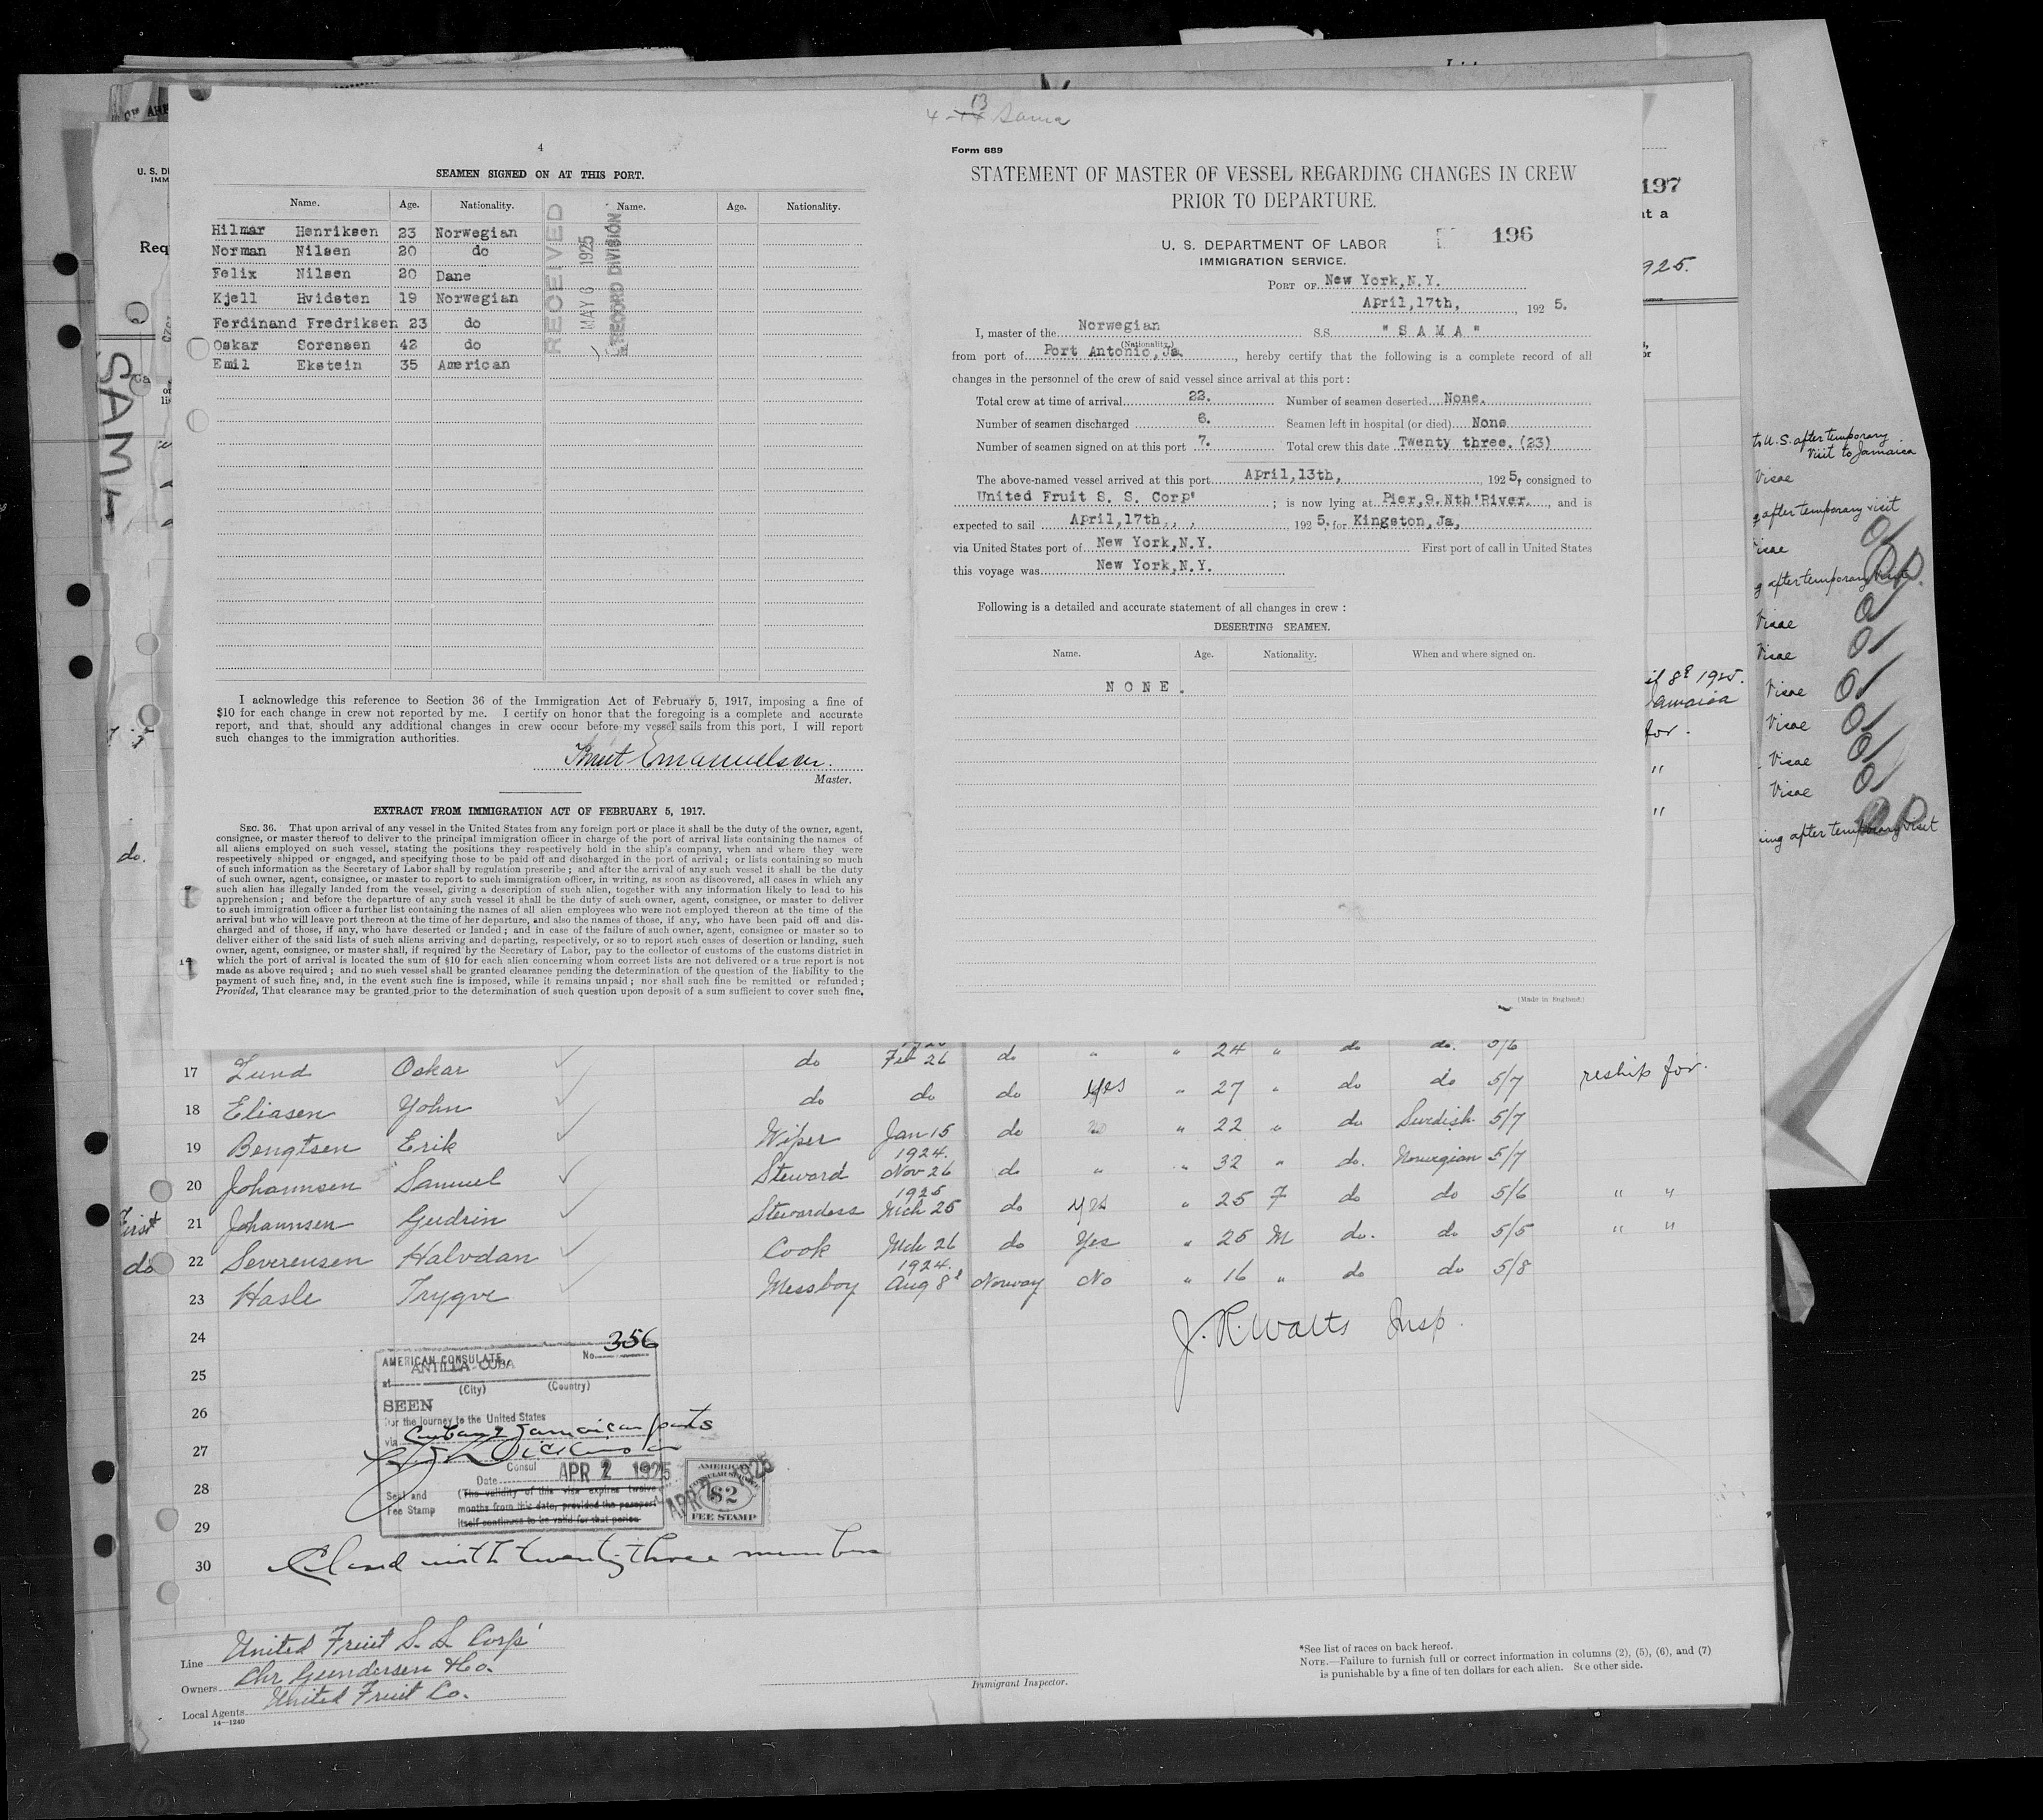 4-13 Sama
4
SEAMEN SIGNED ON AT THIS PORT.
Name. Age. Nationality. Name. Age. Nationality.
Hilmar Henriksen 23 Norwegian
Norman Nilsen 20 do
Felix Nilsen 20 Dane
Kjell Hvidsten 19 Norwegian
Ferdinand Fredriksen 23 do
Oskar Sorensen 42 do
Emil Ekstein 35 American
RECEIVED
MAY 6 1925
RECORD DIVISION
I acknowledge this reference to Section 36 of the Immigration Act of February 5, 1917, imposing a fine of
$10 for each change in crew not reported by me. I certify on honor that the foregoing is a complete and accurate
report, and that, should any additional changes in crew occur before my vessel sails from this port, I will report
such changes to the immigration authorities.
Knut Emanuelsen.
Master.
EXTRACT FROM IMMIGRATION ACT OF FEBRUARY 5, 1917.
SEC. 36. That upon arrival of any vessel in the United States from any foreign port or place it shall be the duty of the owner, agent,
consignee, or master thereof to deliver to the principal immigration officer in charge of the port of arrival lists containing the names of
all aliens employed on such vessel, stating the positions they respectively hold in the ship's company, when and where they were
respectively shipped or engaged, and specifying those to be paid off and discharged in the port of arrival; or lists containing so much
of such information as the Secretary of Labor shall by regulation prescribe; and after the arrival of any such vessel it shall be the duty
of such owner, agent, consignee, or master to report to such immigration officer, in writing, as soon as discovered, all cases in which any
such alien has illegally landed from the vessel, giving a description of such alien, together with any information likely to lead to his
apprehension; and before the departure of any such vessel it shall be the duty of such owner, agent, consignee, or master to deliver
to such immigration officer a further list containing the names of all alien employees who were not employed thereon at the time of the
arrival but who will leave port thereon at the time of her departure, and also the names of those, if any, who have been paid off and dis-
charged and of those, if any, who have deserted or landed; and in case of the failure of such owner, agent, consignee or master so to
deliver either of the said lists of such aliens arriving and departing, respectively, or so to report such cases of desertion or landing, such
owner, agent, consignee, or master shall, if required by the Secretary of Labor, pay to the collector of customs of the customs district in
which the port of arrival is located the sum of $10 for each alien concerning whom correct lists are not delivered or a true report is not
made as above required; and no such vessel shall be granted clearance pending the determination of the question of the liability to the
payment of such fine, and, in the event such fine is imposed, while it remains unpaid; nor shall such fine be remitted or refunded;
Provided, That clearance may be granted prior to the determination of such question upon deposit of a sum sufficient to cover such fine,
Form 689
STATEMENT OF MASTER OF VESSEL REGARDING CHANGES IN CREW
PRIOR TO DEPARTURE.
U. S. DEPARTMENT OF LABOR 196
IMMIGRATION SERVICE.
PORT OF New York,N.Y.
April,17th, , 192 5.
I, master of the Norwegian S.S. "SAMA"
(Nationality.)
from port of Port Antonio,Ja. , hereby certify that the following is a complete record of all
changes in the personnel of the crew of said vessel since arrival at this port:
Total crew at time of arrival 22. Number of seamen deserted None.
Number of seamen discharged 6. Seamen left in hospital (or died) None
Number of seamen signed on at this port 7. Total crew this date Twenty three. (23)
The above-named vessel arrived at this port April,13th, , 192 5, consigned to
United Fruit S. S. Corp' ; is now lying at Pier,9.Nth'River. , and is
expected to sail April,17th,, , 192 5, for Kingston,Ja,
via United States port of New York,N.Y. First port of call in United States
this voyage was New York,N.Y.
Following is a detailed and accurate statement of all changes in crew:
DESERTING SEAMEN.
Name. Age. Nationality. When and where signed on.
NONE.
(Made in England.)
U. S. D
IMM
Req
SAMA
197
at a
925.
to U.S. after temporary
visit to Jamaica
Visae
after temporary visit
Visae
after temporary visit
Visae
Visae
Visae
Visae
Visae
Visae
ing after temporary visit
il 8th 1925.
Jamaica
for.
"
"
do.
17 Lund Oskar do Feb 26 do " " 24 " do do. 5/6
18 Eliasen John do do do yes " 27 " do do 5/7 reship for.
19 Bengtsen Erik Wiper Jan 15 do " 22 " do Swedish 5/7
20 Johannsen Samuel Steward 1924. Nov 26 do " " 32 " do. Norwegian 5/7
First 21 Johannsen Gudrin Stewardess 1925 Mch 25 do yes " 25 F do do 5/6 " "
do 22 Severensen Halvdan Cook Mch 26 do Yes " 25 M do. do 5/5 " "
23 Hasle Trygve Messboy 1924. Aug 8th Norway No " 16 " do do 5/8
24
25
26
27
28
29
30
J. R. Watts Insp.
AMERICAN CONSULATE No. 356
at ANTILLA-CUBA
(City) (Country)
SEEN
for the journey to the United States
via Cuban & Jamaican ports
Consul
Date APR 2 1925
Seal and
Fee Stamp
(The validity of this visa expires twelve
months from this date, provided the passport
itself continues to be valid for that period
AMERICAN
CONSULAR SERVICE
$2
FEE STAMP
APR 2 1925
Closed with twenty three members
Line United Fruit S. S. Corp'
Owners Chr. Gundersen & Co.
Local Agents United Fruit Co.
14—1240
Immigrant Inspector.
*See list of races on back hereof.
NOTE.—Failure to furnish full or correct information in columns (2), (5), (6), and (7)
is punishable by a fine of ten dollars for each alien. See other side.